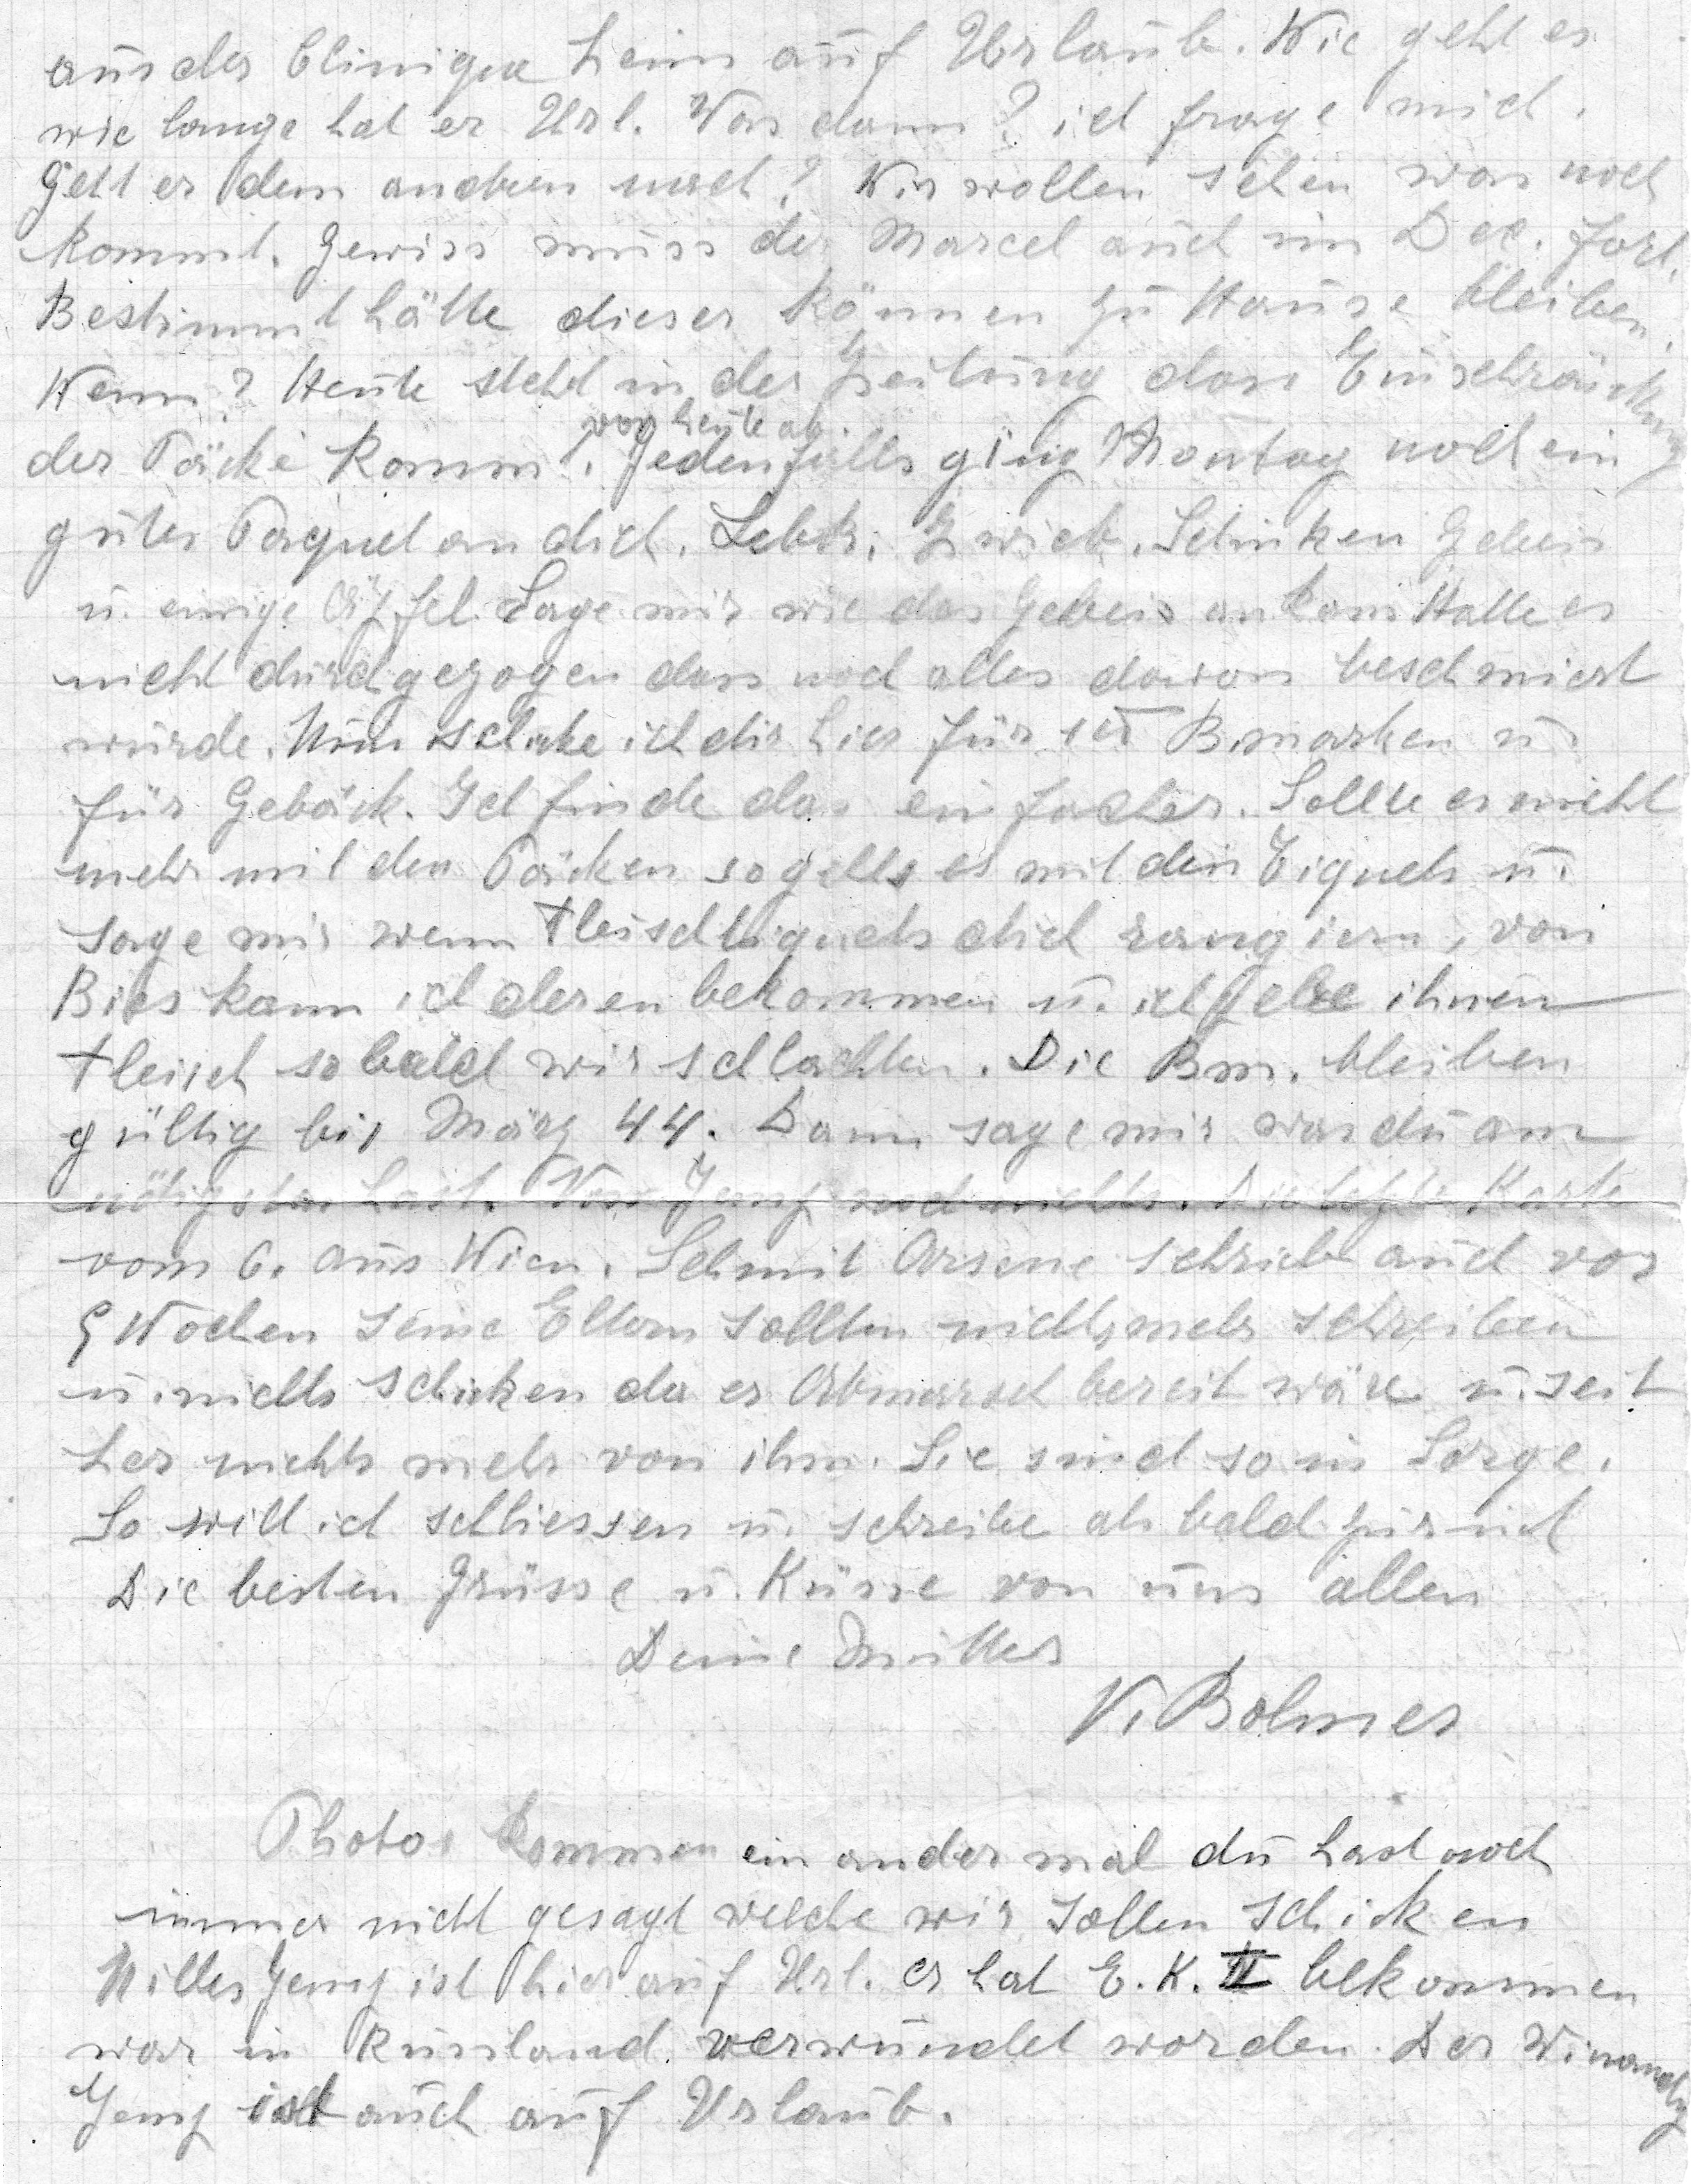 aus der Clinique heim auf Urlaub. Wie geht es
wie lange hat er Url. Was dann? ich frage mich.
Geht er dem andren nach? Wir wollen sehen was noch
kommt. Gewiss muss der Marcel auch im Dec. fort.
Bestimmt hätte dieser können zu Hause bleiben.
Wenn? Heute steht in der Zeitung dass Einschränkung
von heute ab
der Päcke kommt. Jedenfalls ging Montag noch ein
gutes Paquet an dich. Lebk. Zwieb. Schinken Gebeis
u. einige Äpfel. Sage mir wie das Gebeis ankam Hatte es
nicht durchgezogen dass noch alles davon beschmiert
wurde. Nun schicke ich dir hier für B.marken u.
für Gebäck. Ich finde das einfacher. Sollte es nicht
mehr mit den Päcken so gehts es mit den Tiquets u.
sage mir wenn Fleischtiquets dich rangieren, von
Bies kann ich deren bekommen u. ich gebe ihnen
Fleisch sobald wir schlachten. Die Bm. bleiben
gültig bis März 44. Dann sage mir was du am
nötigsten hast. Von Jemp noch nichts. Die letzte Karte
vom 6. aus Wien. Schmit Arsene schrieb auch vor
5 Wochen seine Eltern sollten nichts mehr schreiben
u. nichts schicken da er Abmarsch bereit wäre u. seit
her nichts mehr von ihm. Sie sind so in Sorge.
So will ich schliessen u. schreibe als bald zurück
Die besten Grüsse u. Küsse von uns allen
Deine Mutter
V. Bolmer
Photos kommen ein ander mal du hast noch
immer nicht gesagt welche wir sollen schicken
Nilles Jemp ist hier auf Url. er hat E.K. II bekommen
war in Russland verwundet worden. Der Winandy
Jemp ist auch auf Urlaub.